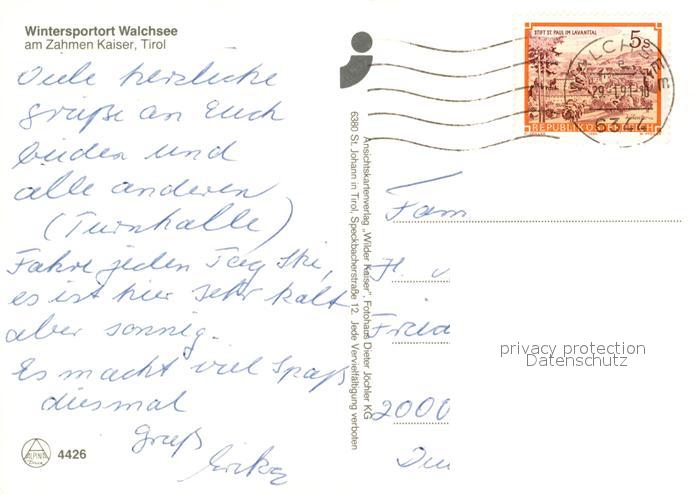 Wintersportort Walchsee
am Zahmen Kaiser, Tirol
Viele herzliche
grüße an Euch
beiden und
alle anderen
(Turnhalle)
Fahre jeden Tag Ski,
es ist hier sehr kalt
aber sonnig.
Es macht viel Spaß
diesmal
Gruß
Erika
ALPINA
4426
Ansichtskartenverlag „Wilder Kaiser", Fotohaus Dieter Jöchler KG
6380 St. Johann in Tirol, Speckbacherstraße 12. Jede Vervielfältigung verboten
STIFT ST. PAUL IM LAVANTTAL
5S
REPUBLIK ÖSTERREICH
6344
Fam
H. u
Frida
2000
privacy protection
Datenschutz